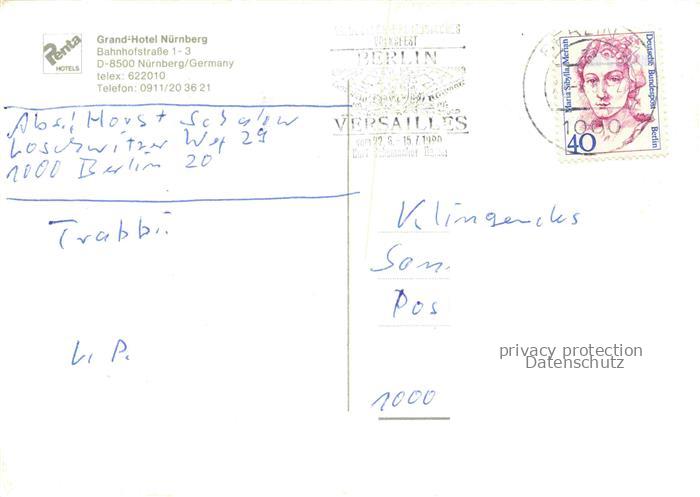 Penta
HOTELS
Grand-Hotel Nürnberg
Bahnhofstraße 1-3
D-8500 Nürnberg/Germany
telex: 622010
Telefon: 0911/20 36 21
VOLKSFEST
BERLIN
VERSAILLES
BERLIN
1000
Maria Sibylla Merian
Deutsche Bundespost Berlin
40
Abs.: Horst Schalow
Loschwitzer Weg 29
1000 Berlin 20
Trabbi
k. P.
Klingendes
Son
Pos
1000
privacy protection
Datenschutz